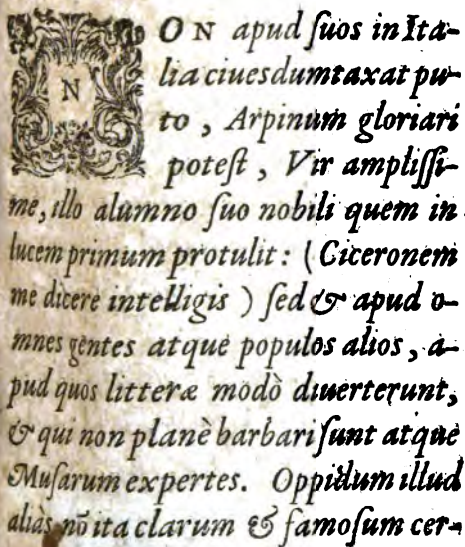 NON apud ſuos in Ita-
lia ciues dumtaxat pu-
to, Arpinum gloriari
poteſt, Vir ampliſſi-
me, illo alumno ſuo nobili quem in
lucem primum protulit: (Ciceronem
me dicere intelligis) ſed & apud o-
mnes gentes atque populos alios, a-
pud quos litteræ modò diuerterunt,
& qui non planè barbari ſunt atque
Muſarum expertes. Oppidum illud
aliàs nō ita clarum & famoſum cer-